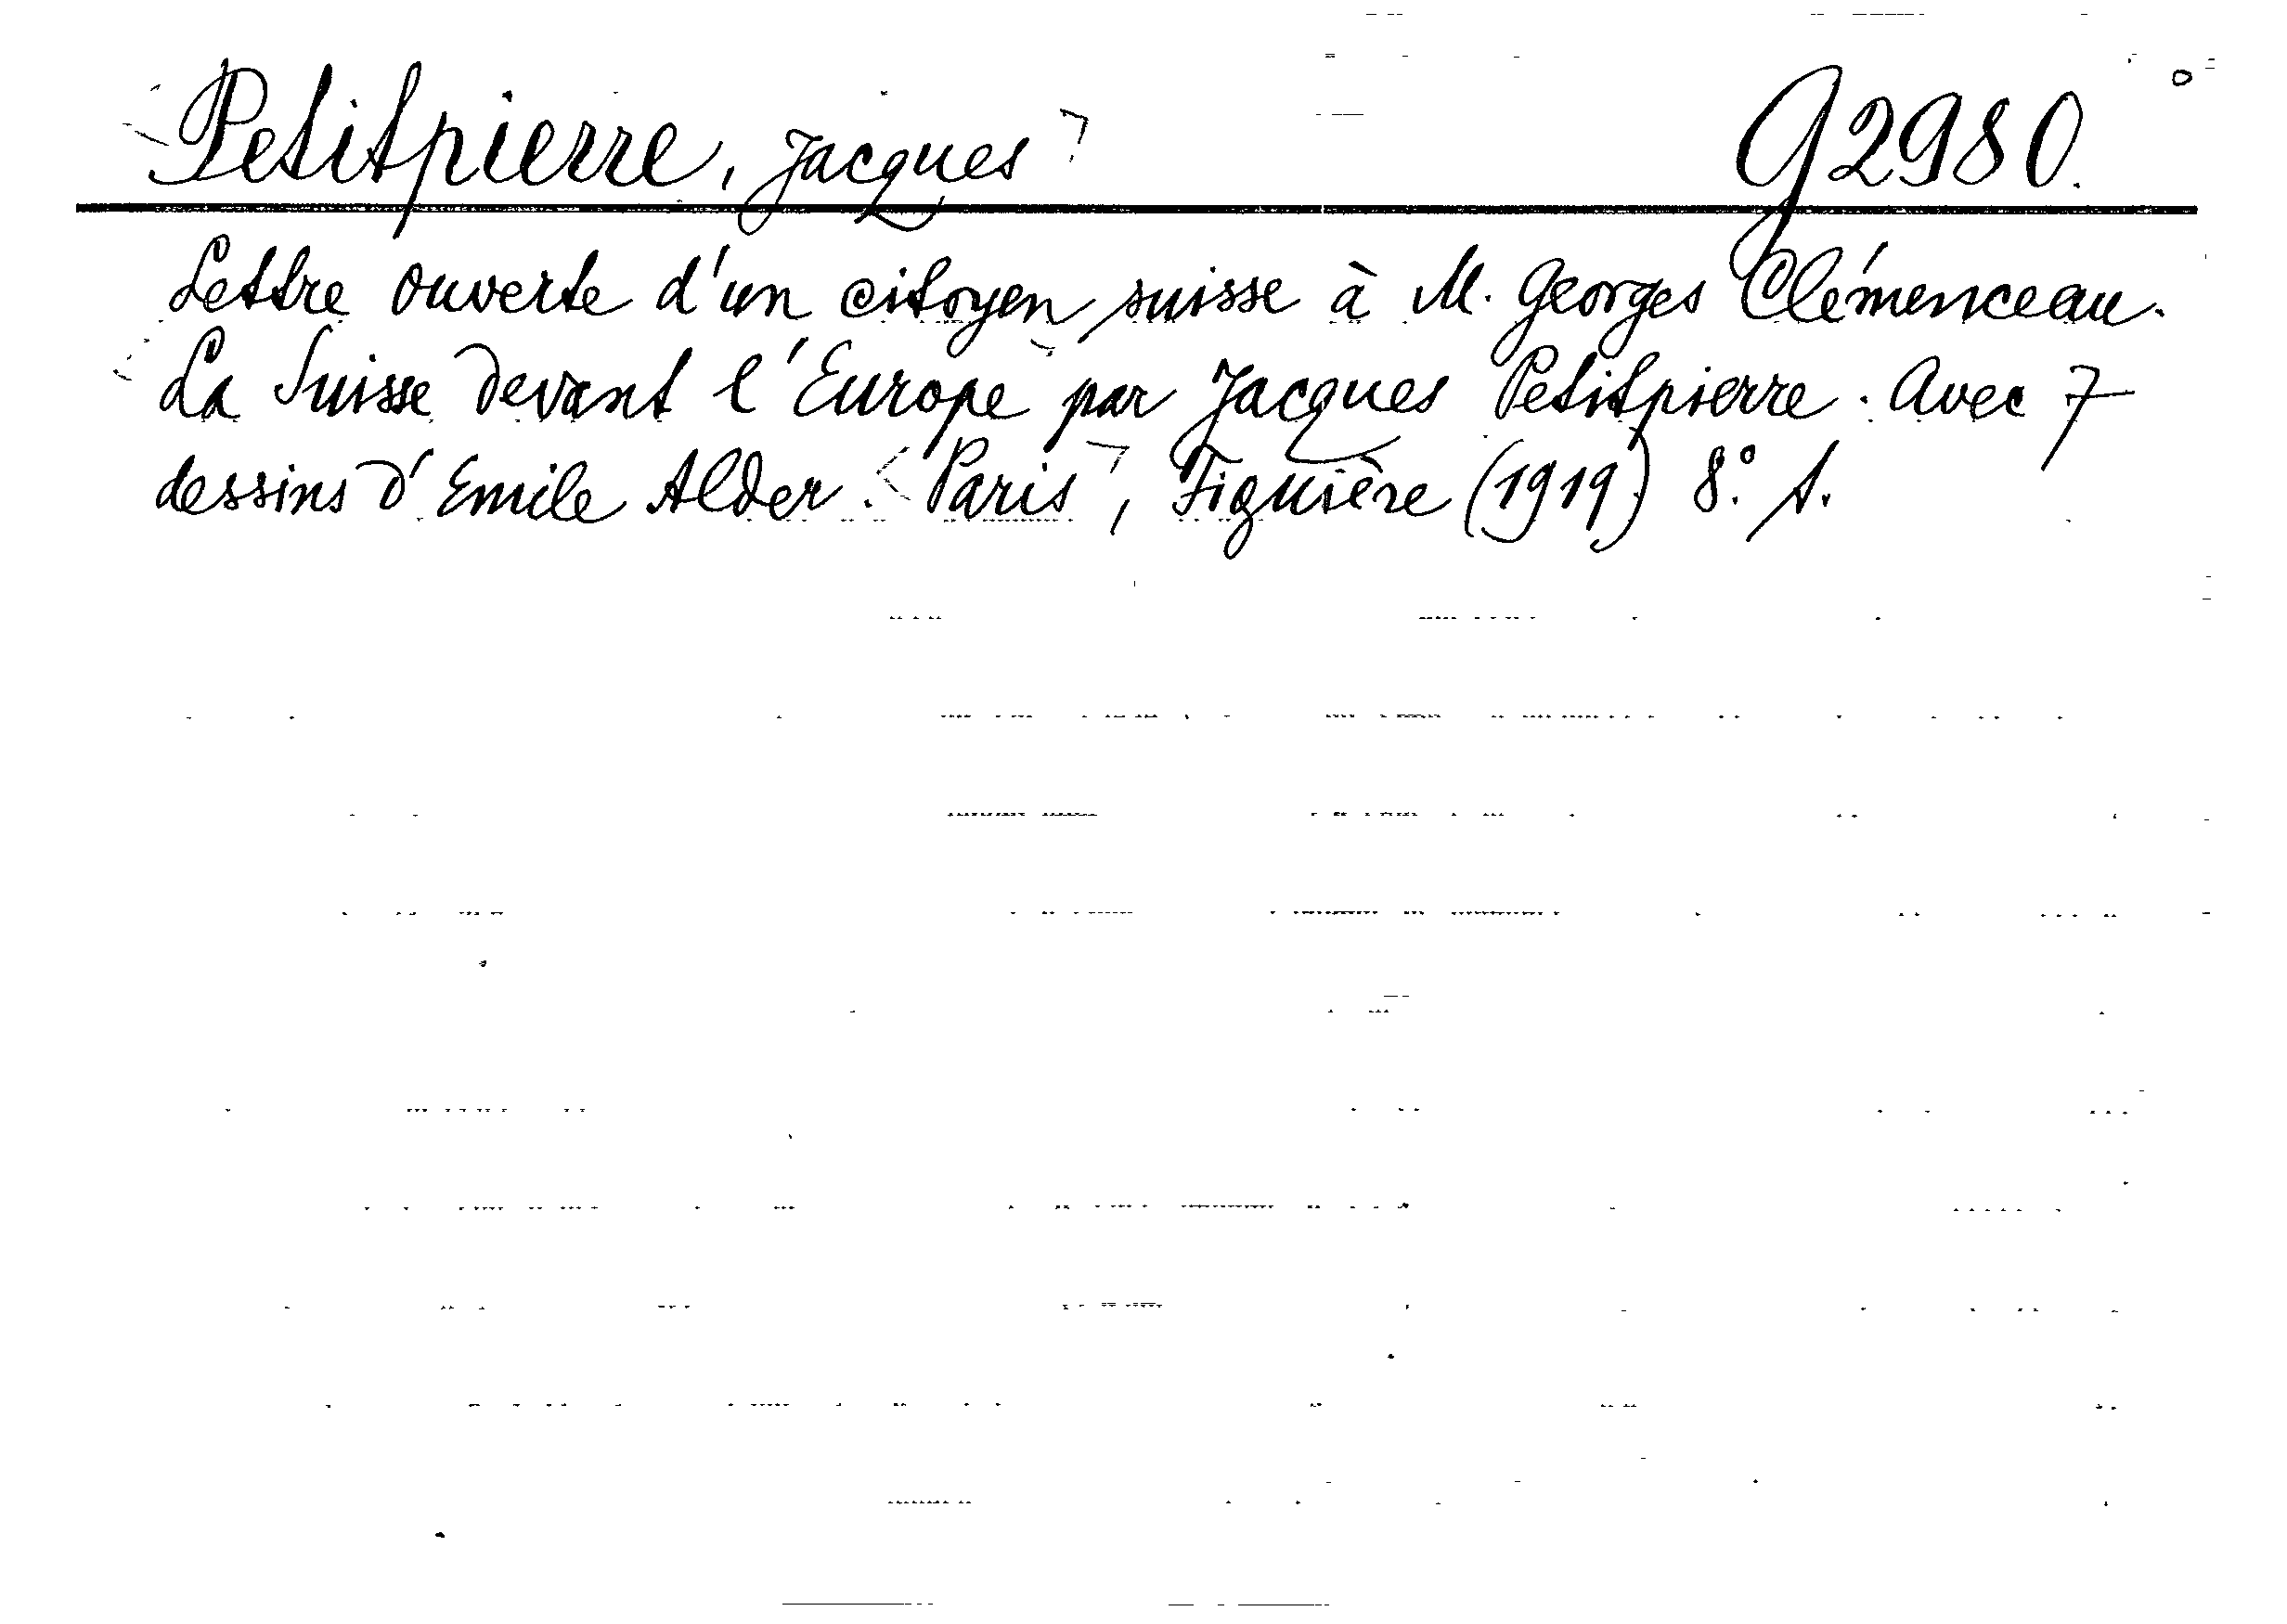 Petitpierre, Jacques G2980.
Lettre ouverte d'un citoyen suisse à M. Georges Clémenceau.
La Suisse devant l'Europe par Jacques Petitpierre. Avec 7
dessins d'Emile Alder. Paris, Figuière (1919) 8°. s.